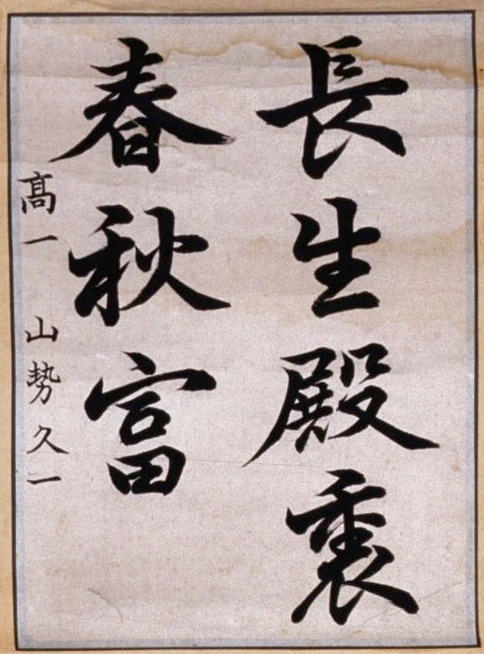 長生殿裏
春秋富
髙一 山勢久一